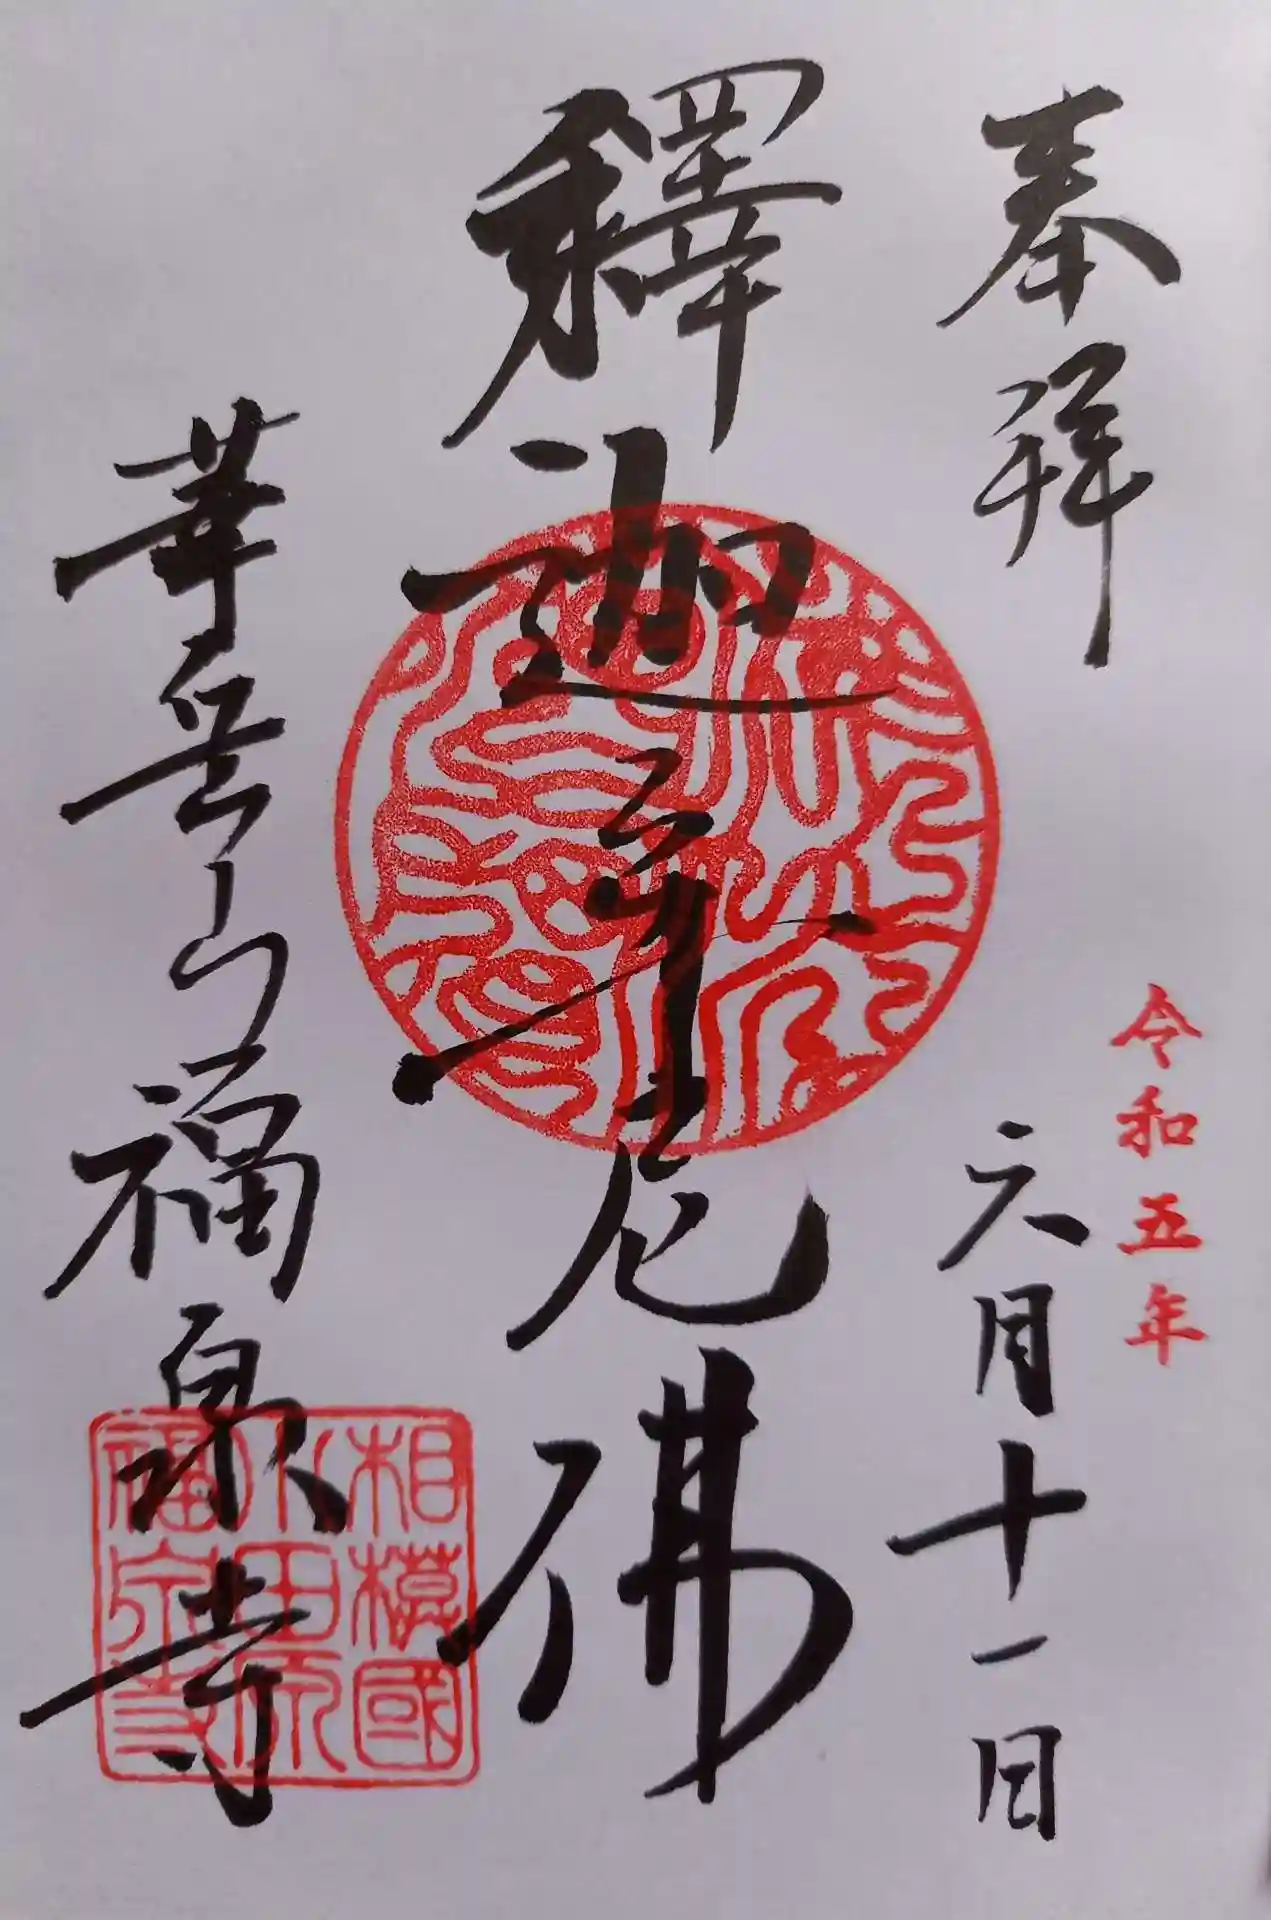 奉拜
令和五年
六月十一日
釋迦牟尼佛
華岳山福泉寺
相模國
小田原
福泉寺